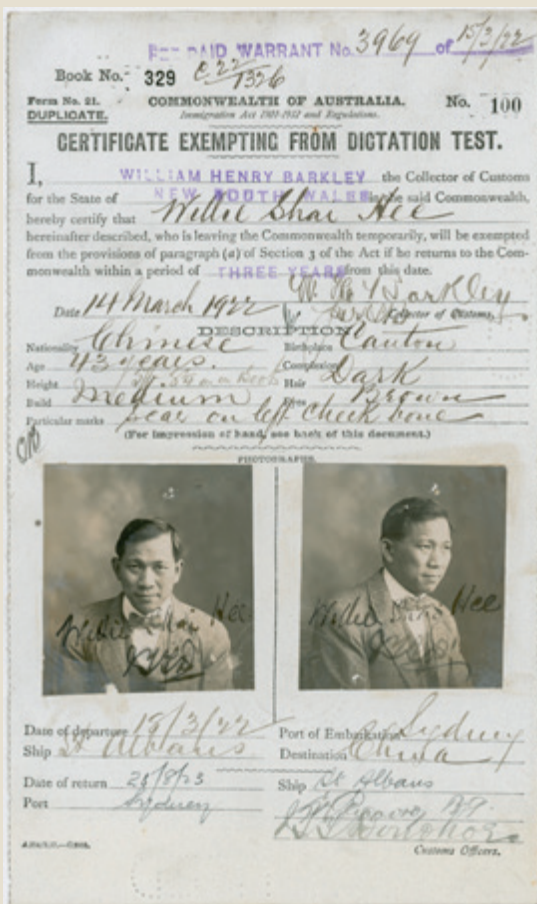 FEE PAID WARRANT No. 3969 of 15/3/22
Book No. 329 C22/1326
Form No. 21. COMMONWEALTH OF AUSTRALIA. No. 100
DUPLICATE. Immigration Act 1901-1912 and Regulations.
CERTIFICATE EXEMPTING FROM DICTATION TEST.
I, WILLIAM HENRY BARKLEY the Collector of Customs
for the State of NEW SOUTH WALES in the said Commonwealth,
hereby certify that Willie Shai Hee
hereinafter described, who is leaving the Commonwealth temporarily, will be exempted
from the provisions of paragraph (a) of Section 3 of the Act if he returns to the Com-
monwealth within a period of THREE YEARS from this date.
W. H. Barkley
Date 14 March 1922 Collector of Customs.
DESCRIPTION
Nationality Chinese Birthplace Canton
Age 43 years. Complexion Dark
Height Hair
Build Medium Eyes Brown
Particular marks scar on left cheek bone
(For impression of hand, see back of this document.)
PHOTOGRAPHS.
Willie Shai Hee Willie Shai Hee
Date of departure 18/3/22 Port of Embarkation Sydney
Ship St Albans Destination China
Date of return Ship St Albans
Port Sydney
Customs Officers.